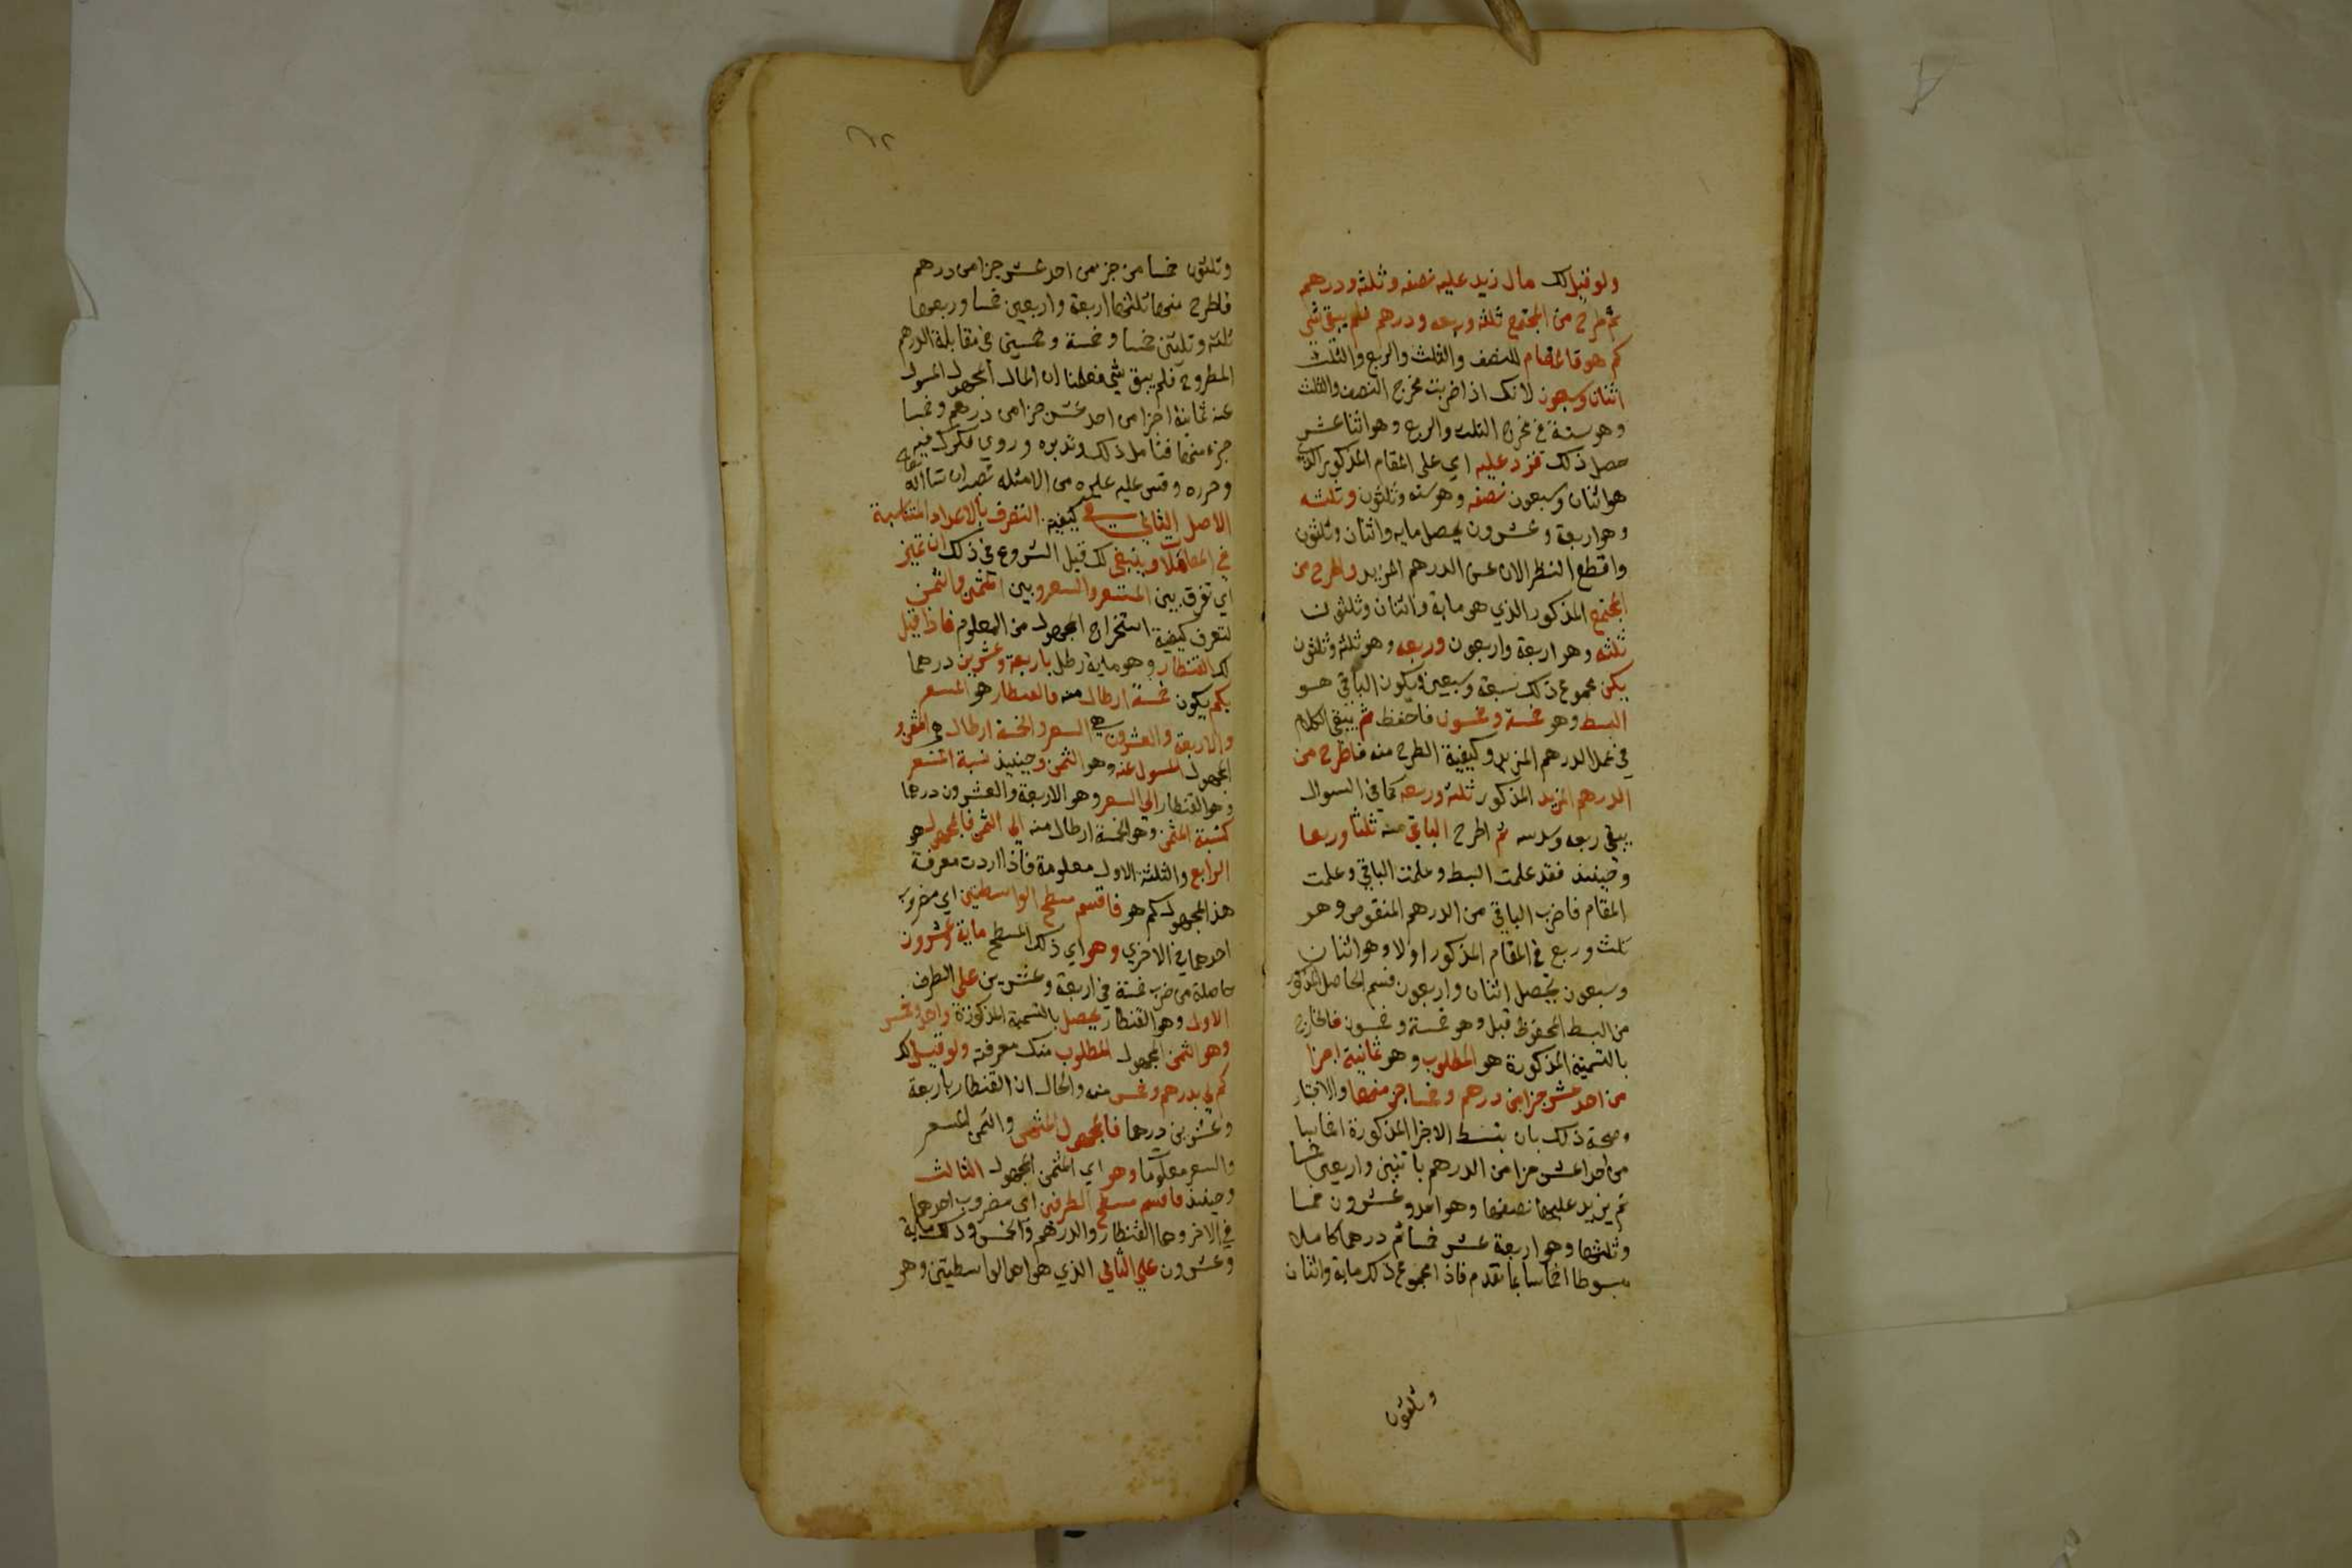 ولو قيل لك مال زيد عليه نصفه وثلثه ودرهم
ثم طرح من المجتمع ثلثه وربعه ودرهم فلم يبق شي
كم هو فالمقام للنصف والثلث والربع والثلث
اثنان وسبعون لانك اذا ضربت مخرج النصف والثلث
وهو ستة في مخرج الثلث والربع وهو اثنا عشر
حصل ذلك فزد عليه اي على المقام المذكور الذي
هو اثنان وسبعون نصفه وهو سته وثلثون وثلثه
وهو اربعة وعشرون يحصل مايه واثنان وثلثون
واقطع النظر الان عن الدرهم المزيد واطرح من
المجتمع المذكور الذي هو ماية واثنان وثلثون
ثلثه وهو اربعة واربعون وربعه وهو ثلثه وثلثون
يكن مجموع ذلك سبعة وسبعين ويكون الباقي هو
البسط وهو خمسة وخمسون فاحفظه ثم يبقي الكلام
في عمل الدرهم المزيد وكيفية الطرح منه فاطرح من
الدرهم المزيد المذكور ثلثه وربعه كما في السوال
يبقي ربعه وسدسه ثم اطرح الباقي منه ثلثا وربعا
وحينيذ فقد علمت البسط وعلمت الباقي وعلمت
المقام فاضرب الباقي من الدرهم المنقوص وهو
ثلث وربع في المقام المذكور اولا وهو اثنان
وسبعون يحصل اثنان واربعون فسم الحاصل المذكور
من البسط المحفوظ قبل وهو خمسة وخمسون فالخارج
بالتسمية المذكورة هو المطلوب وهو ثمانية اجزا
من احد عشر جزا من درهم وخمسا جز منها والاختبار
وصحة ذلك بان تبسط الاجزا المذكورة اخماسا
من احد عشر جزا من الدرهم باثنين واربعين خمسا
ثم يزيد عليها نصفها وهو احد وعشرون خمسا
وثلثها وهو اربعة عشر خمسا ثم درهما كاملا
مبسوطا اخماسا بما تقدم فاذا مجموع ذلك ماية واثنان
وثلثون
وثلثون خمسا من جز من احد عشر جزا من درهم
فاطرح منها ثلثها اربعة واربعين خمسا وربعها
ثلثه وثلثين خمسا وخمسة وخمسين في مقابلة الدرهم
المطروح فلم يبق شي فعلمنا ان المال المجهول المسول
عنه ثمانية اجزا من احد عشر جزا من درهم وخمسا
جزء منها فتامل ذلك وتدبره وروي فكرك فيه
وحرره وقس عليه غيره من الامثله تصب ان شا الله تعالى
الاصل الثاني في كيفية التصرف بالاعداد المتناسبة
في المعاملات وينبغي لك قبل الشروع في ذلك ان تميز
اي تفرق بين المسعر والسعر وبين المثمن والثمن
لتعرف كيفية استخراج المجهول من المعلوم فاذا قيل
لك القنطار وهو ماية رطل باربعة وعشرين درهما
بكم يكون خمسة ارطال منه فالقنطار هو المسعر
والاربعة والعشرون هي السعر والخمسة ارطال هي المثمن و
المجهول المسول عنه وهو الثمن وحينيذ نسبة المسعر
وهو القنطار الي السعر وهو الاربعة والعشرون درهما
كنسبة المثمن وهو الخمسة ارطال منه الي الثمن فالمجهول هو
الرابع والثلثة الاول معلومة فاذا اردت معرفة
هذا المجهول كم هو فاقسم مسطح الواسطتين اي مضروب
احدهما في الاخري وهو اي ذلك المسطح ماية وعشرون
حاصلة من ضرب خمسة في اربعة وعشرين علي الطرف
الاول وهو القنطار يحصل بالتسمية المذكورة واحد وخمس
وهو الثمن المجهول المطلوب منك معرفته ولو قيل لك
كم لي بدرهم وخمس منه والحال ان القنطار باربعة
وعشرين درهما فالمجهول المثمن والثمن المسعر
والسعر معلوما وهو اي المثمن المجهول الثالث
وحينيذ فاقسم مسطح الطرفين اي مضروب احدهما
في الاخر وهما القنطار والدرهم والخمس وذلك ماية
وعشرون علي الثاني الذي هو احد الواسطتين وهو